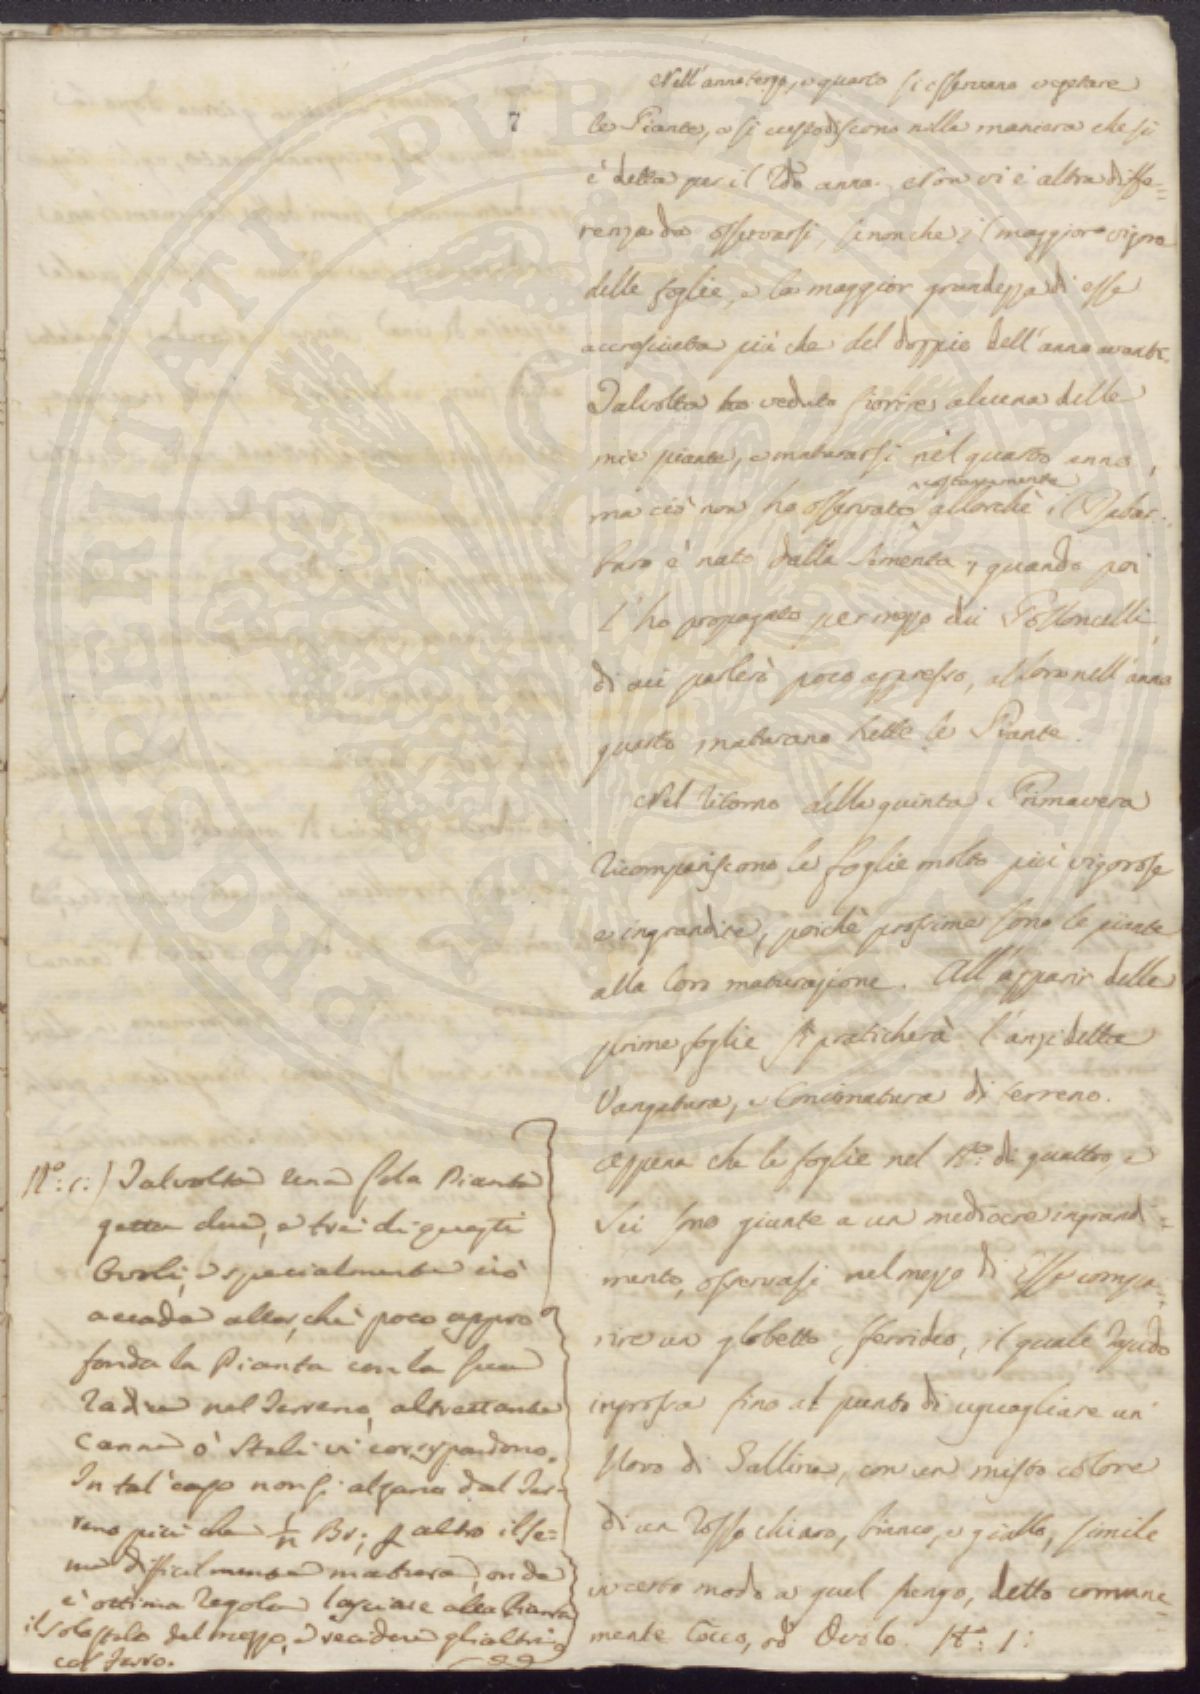 7
Nell'anno terzo, e quarto si osservano vegetare
le Piante, e si custodiscono nella maniera che si
è detta per il 2do anno. Non vi è altra diffe=
renza da osservarsi, senonche il maggiore vigore
delle foglie, e la maggior grandezza di esse
accresciuta più che del doppio dell'anno avanti.
Talvolta ho veduto fiorire alcuna delle
mie piante, e maturarsi nel quarto anno,
costantemente
ma ciò non ho osservato allorchè il Rabar-
baro è nato dalla Sementa; quando poi
l'ho propagato per mezzo dei Polloncelli
di cui parlerò poco appresso, allora nell'anno
quarto maturano tutte le Piante.
Nel ritorno della quinta Primavera
ricompariscono le foglie molto più vigorose
e ingrandite, poichè prossime sono le piante
alla loro maturazione. All'apparir delle
prime foglie si praticherà l'anzidetta
Vangatura, e Concimatura di terreno.
Appena che le foglie nel No: di quattro, e
Sei sono giunte a un mediocre ingrandi=
mento, osservasi nel mezzo di Esse compa=
rire un globetto sferoideo, il quale
ingrossa fino al punto di uguagliare un
Uovo di Gallina, con un misto colore
di un rosso chiaro, bianco, e giallo, simile
in certo modo a quel fungo, detto comune=
mente Cocco, od Ovolo. No: 1:
No: 1:) Talvolta una sola Pianta
getta due, e trè di questi
Ovoli, e specialmente ciò
accade allor, chè poco appro
fonda la Pianta con la sua
radice nel Terreno, altrettante
canne ò Steli vi corrispondono.
In tal caso non si alzano dal Ter-
reno più che Br; altro il se=
me difficilmente matura, onde
è ottima regola lasciare alla Pianta
il solo stelo del mezzo, e recidere gli altri
col ferro.